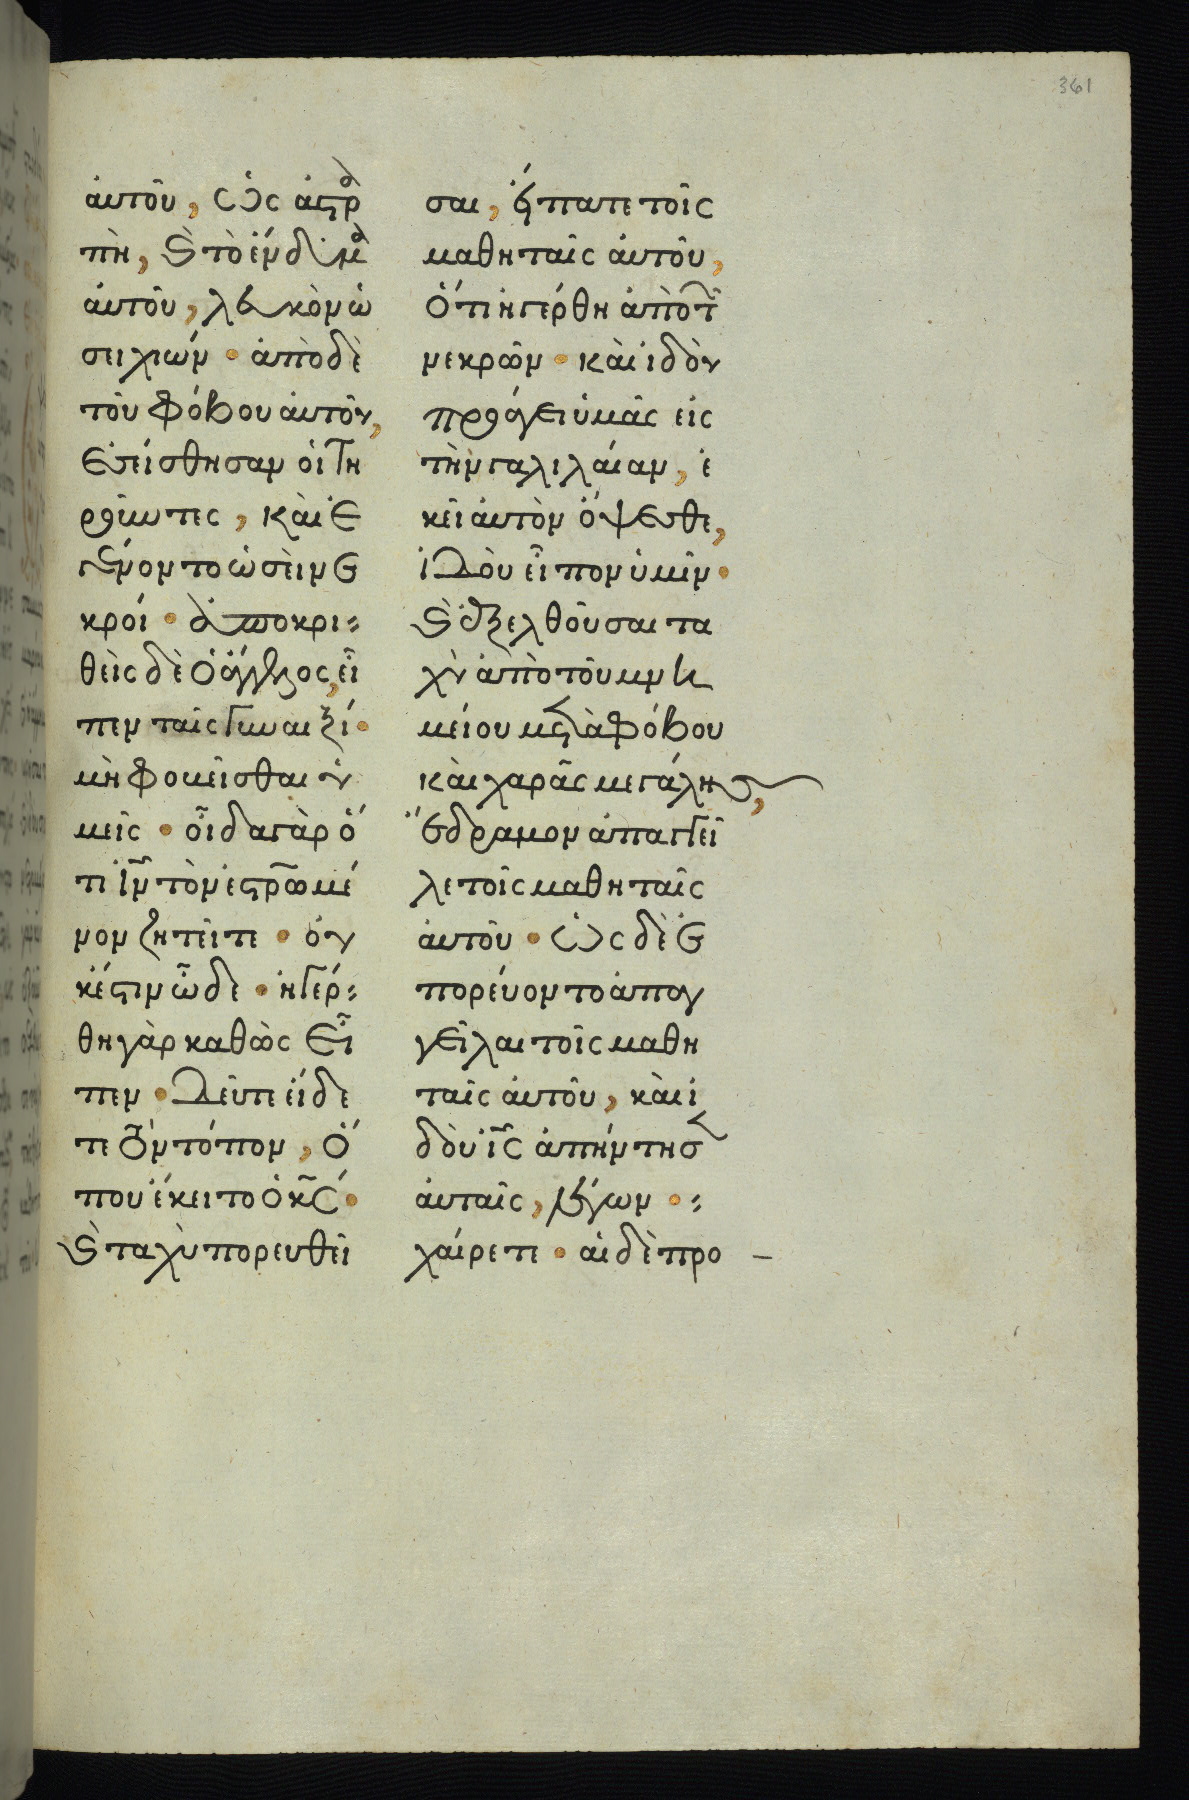 361
ἀυτοῦ, ὡς ἀςρα
πὴ, ϗ τὸ ἔνδυμα
ἀυτοῦ, λευκὸν ὡ
σει χιών · ἀπὸ δὲ
τοῦ φόβου ἀυτοῦ,
ἐσείσθησαν οἱ τη
ροῦντες, κὰι ἐ
γένοντο ὡσὲι νε
κροί · ἀποκρι-
θεὶς δὲ ὁ ἄγγελος, εἶ
πεν ταῖς γυναιξί ·
μὴ φοβεῖσθαι ὑ
μεῖς · οἶδα γὰρ ὅ
τι ἰν̅ τὸν ἐςρ̅ωμέ
νον ζητεῖτε · ὀυ
κέςιν ὧδε · ἠγέρ-
θη γὰρ καθὼς εἶ
πεν · δεῦτε ἴδε
τε τὸν τόπον, ὅ
που ἔκειτο ὁ κ̅ς ·
ϗ ταχὺ πορευθεῖ
σαι, ἔιπατε τοῖς
μαθηταῖς ἀυτοῦ,
ὅτι ἠγέρθη ἀπὸ τ
νεκρῶν · κὰι ἰδὸυ
προάγει ὑμᾶς εἰς
τὴν γαλιλάιαν, ἐ
κεῖ ἀυτὸν ὄψεσθε,
ἰδὸυ εἶπον ὑμῖν ·
ϗ ἐξελθοῦσαι τα
χὺ ἀπὸ τοῦ μνη
μείου μετὰ φόβου
κὰι χαρᾶς μεγάλης,
ἔδραμον ἀπαγγεῖ
λε τοῖς μαθηταῖς
ἀυτοῦ · ὡς δὲ ἐ
πορέυοντο ἀπαγ
γεῖλαι τοῖς μαθη
ταῖς ἀυτοῦ, κὰι ἰ
δὸυ ἰ̅ς ἀπήντησεν
ἀυταῖς, λέγων ·
χάιρετε · ἁι δὲ προ